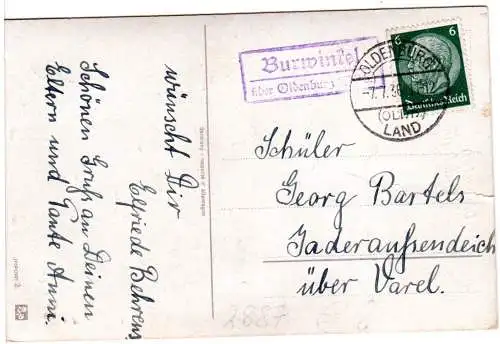 wünscht Dir
Elfriede Behrens
Schönen Gruß an Deinen
Eltern und Tante Anni.
Burwinkel
über Oldenburg
OLDENBURG
-7.7.36
(OLDB)
LAND
6
6
Deutsches Reich
Schüler
Georg Bartels
Jaderaussendeich
über Varel.
2887